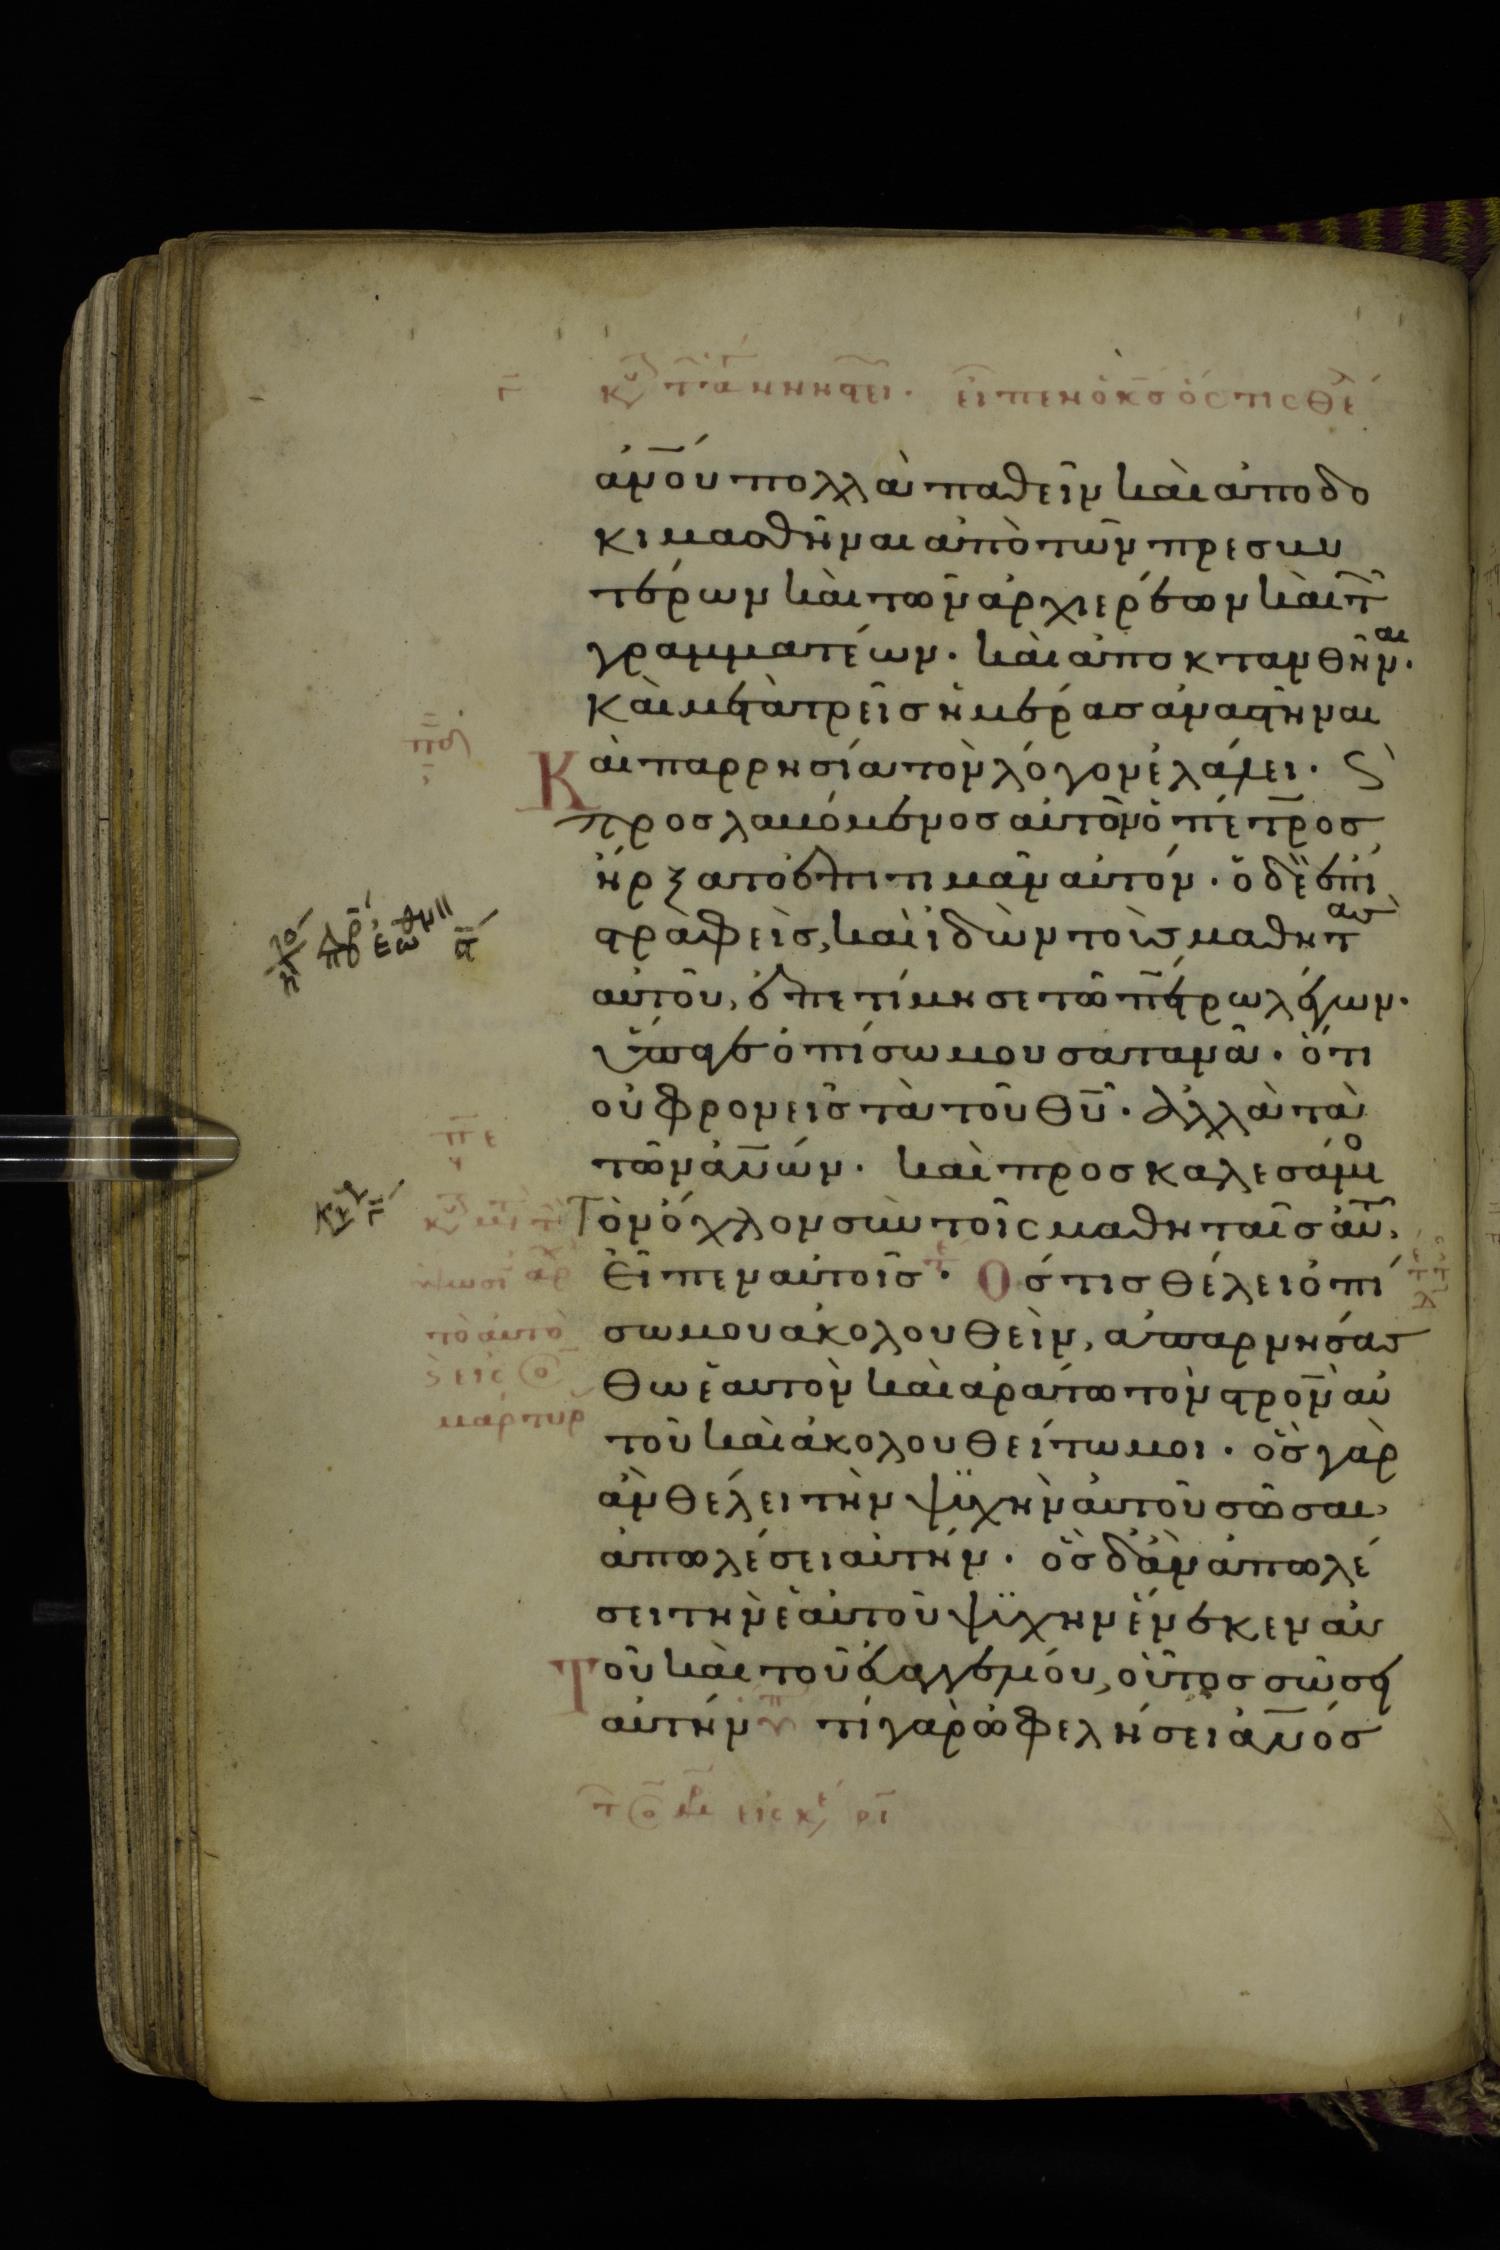 εἶπεν ὁ κ̅ς̅ ὅστις θέ
α̅ν̅ου πολλὰ παθεῖν καὶ ἀποδο
κιμασθῆναι ἀπὸ τῶν πρεσβυ
τέρων καὶ τῶν ἀρχιερέων καὶ τ̅
γραμματέων· καὶ ἀποκτανθῆναι·
καὶ μετὰ τρεῖς ἡμέρας ἀναστῆναι
Καὶ παρρησία τὸν λόγον ἐλάλει· ϛ
προσλαβόμενος αὐτὸν ὁ πέτρος
ἤρξατο ἐπιτιμᾶν αὐτόν· ὁ δὲ ἐπι
στραφεὶς, καὶ ἰδὼν τοὺς μαθητὰς
αὐτοῦ, ἐπετίμησε τῶ πέτρω λέγων·
ὕπαγε ὀπίσω μου σατανᾶ· ὅτι
οὐ φρονεῖς τὰ τοῦ θ̅υ̅· ἀλλὰ τὰ
τῶν α̅ν̅ων· καὶ προσκαλεσάμενο
Τὸν ὄχλον σὺν τοῖς μαθηταῖς αὐτ,
Εἶπεν αὐτοῖς· Ὅστις θέλει ὀπί
σω μου ἀκολουθεῖν, ἀπαρνησάσ
θω ἑαυτὸν καὶ ἀράτω τὸν σ̅τ̅ρ̅ο̅ν̅ αὐ
τοῦ καὶ ἀκολουθείτω μοι· ὃς γὰρ
ἂν θέλει τὴν ψυχὴν αὐτοῦ σῶσαι,
ἀπωλέσει αὐτήν· ὃς δ' ἂν ἀπωλέ
σει τὴν ἑαυτοῦ ψυχὴν ἕνεκεν ἐμ
Τοῦ καὶ τοῦ εὐαγγελίου, οὗτος σώσει
αὐτήν τί γὰρ ὠφελήσει α̅ν̅ος